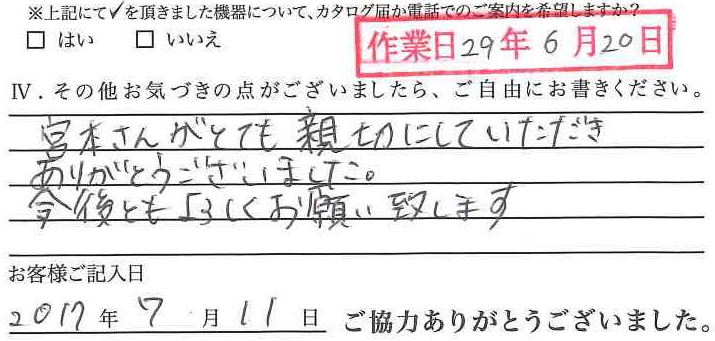 ※上記にて✓を頂きました機器について、カタログ届か電話でのご案内を希望しますか?
□ はい □ いいえ
作業日29年6月20日
Ⅳ．その他お気づきの点がございましたら、ご自由にお書きください。
宮本さんがとても親切にしていただき
ありがとうございました。
今後とも よろしくお願い致します
お客様ご記入日
2017年 7月 11日 ご協力ありがとうございました。